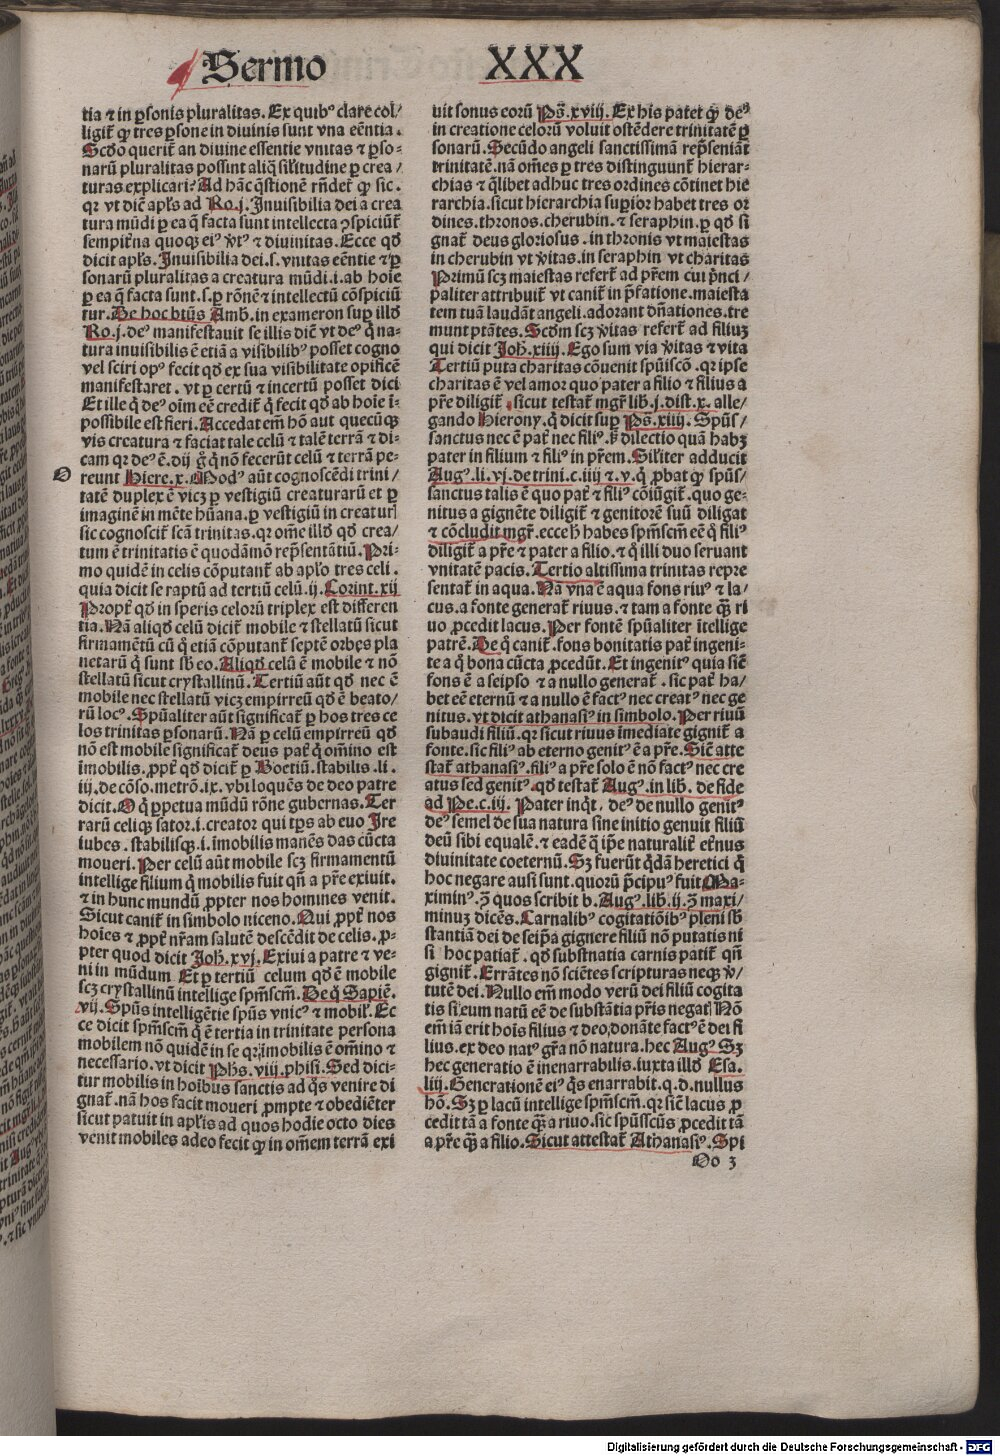 Sermo XXX
tia ⁊ in ꝑsonis pluralitas. Ex quibꝰ clare col/
ligit̃ ꝙ tres ꝑsone in diuinis sunt vna eẽntia.
Scd̃o querit̃ an diuine essentie vnitas ⁊ ꝑso-
narũ pluralitas possint aliq̃ sil̃itudine ꝑ crea/
turas explicari? Ad hãc q̃stionẽ rñdet̃ ꝙ sic.
qꝛ vt dicit apl̃s ad Ro.j. Inuisibilia dei a crea
tura mũdi ꝑ ea q̃ facta sunt intellecta ꝯspiciũt̃
sempit̃na quoqꝫ eiꝰ v̾tꝰ ⁊ diuinitas. Ecce qd̃
dicit apl̃s. Inuisibilia dei.s. vnitas eẽntie ⁊ ꝑ
sonarũ pluralitas a creatura mũdi.i. ab hoie
ꝑ ea q̃ facta sunt.s. ꝑ rõnẽ ⁊ intellectũ cõspiciũ
tur. De hoc btũs Amb. in exameron sup̱ illd̃
Ro.j. deꝰ manifestauit se illis diẽ vt deꝰ q̃ na-
tura inuisibilis ẽ etiã a visibilibꝰ posset cogno
vel sciri opꝰ fecit qd̃ ex sua visibilitate opificẽ
manifestaret. vt ꝑ certũ ⁊ incertũ posset dici
Et ille q̃ deꝰ oĩm eẽ credit̃ q̃ fecit qd̃ ab hoie ĩ-
possibile est fieri. Accedat em̃ hõ aut quecũqꝫ
vis creatura ⁊ faciat tale celũ ⁊ talẽ terrã ⁊ di-
cam qꝛ deꝰ ẽ. dij g̃ q̃ nõ fecerũt celũ ⁊ terrã pe-
O reunt Hiere.x. Modꝰ aũt cognoscẽdi trini/
tatẽ duplex ẽ vicꝫ ꝑ vestigiũ creaturarũ et ꝑ
imaginẽ in mẽte hũana. ꝑ vestigiũ in creaturĩ
sic cognoscit̃ scã trinitas. qꝛ om̃e illd̃ qd̃ crea/
tum ẽ trinitatis ẽ quodãmõ rep̃sentãtiũ. Pri-
mo quidẽ in celis cõputant̃ ab apl̃o tres celi.
quia dicit se raptũ ad tertiũ celũ. ij. Corint.xij
Propt̃ qd̃ in speris celorũ triplex est differen
tia. Nã aliqd̃ celũ dicit̃ mobile ⁊ stellatũ sicut
firmamẽtũ cũ q̃ etiã cõputant̃ septẽ orbes pla
netarũ q̃ sunt sb̃ eo. Aliqd̃ celũ ẽ mobile ⁊ nõ
stellatũ sicut crystallinũ. Tertiũ aũt qd̃ nec ẽ
mobile nec stellatũ vicꝫ empirreũ qd̃ ẽ beato/
rũ locꝰ. Spũaliter aũt significat̃ ꝑ hos tres ce
los trinitas ꝑsonarũ. Nã ꝑ celũ empirreũ qd̃
nõ est mobile significat̃ deus pat̃ q̃ om̃ino est
ĩmobilis. ꝓpt̃ qd̃ dicit̃ ꝑ Boetiũ. stabilis. li.
iij. de cõso. metrõ. ix. vbi loquẽs de deo patre
dicit. O q̃ ꝑpetua mũdũ rõne gubernas. Ter
rarũ celiqꝫ sator.i. creator qui tp̃s ab euo Ire
iubes. stabilisqꝫ.i. imobilis manẽs das cũcta
moueri. Per celũ aũt mobile scꝫ firmamentũ
intellige filium q̃ mobilis fuit qñ a p̃re exiuit.
⁊ in hunc mundũ ꝓpter nos homines venit.
Sicut canit̃ in simbolo niceno. Qui ꝓpt̃ nos
hoĩes ⁊ ꝓpt̃ nr̃am salutẽ descẽdit de celis. ꝓ-
pter quod dicit Joh̃. xvj. Exiui a patre ⁊ ve-
ni in mũdum Et ꝑ tertiũ celum qd̃ ẽ mobile
scꝫ crystallinũ intellige spm̃scm̃. De q̃ Sapiẽ.
vij. Spũs intelligẽtie spũs vnicꝰ ⁊ mobil̃. Ec
ce dicit spm̃scm̃ q̃ ẽ tertia in trinitate persona
mobilem nõ quidẽ in se qꝛ imobilis ẽ om̃ino ⁊
necessario. vt dicit Ph̃s. viij. phisi. Sed dici-
tur mobilis in hoĩbus sanctis ad q̃s venire di
gnat̃. nã hos facit moueri ꝓmpte ⁊ obediẽter
sicut patuit in apl̃is ad quos hodie octo dies
venit mobiles adeo fecit ꝙ in om̃em terrã exi
uit sonus eorũ Ps̃. xviij. Ex his patet ꝙ deꝰ
in creatione celorũ voluit ostẽdere trinitatẽ ꝑ
sonarũ. Secũdo angeli sanctissimã rep̃seniãt
trinitatẽ. nã om̃es ꝑ tres distinguunt̃ hierar-
chias ⁊ q̃libet adhuc tres ordines cõtinet hie
rarchia. sicut hierarchia suꝑior habet tres or
dines. thronos. cherubin. ⁊ seraphin. ꝑ qd̃ si
gnat̃ deus gloriosus. in thronis vt maiestas
in cherubin vt v̾itas. in seraphin vt charitas
Primũ scꝫ maiestas refert̃ ad p̃rem cui p̃nci/
paliter attribuit̃ vt canit̃ in p̃fatione. maiesta
tem tuã laudãt angeli. adorant dñationes. tre
munt ptãtes. Scd̃m scꝫ v̾itas refert̃ ad filiuꝫ
qui dicit Joh̃. xiiij. Ego sum via v̾itas ⁊ vita
Tertiũ puta charitas cõuenit spũiscõ. qꝛ ipse
charitas ẽ vel amoꝛ quo pater a filio ⁊ filius a
p̃re diligit̃. sicut testat̃ mgr̃ lib. j. dist. x. alle/
gando Hierony. q̃ dicit sup̱ Ps̃. xiij. Spũs/
sanctus nec ẽ pat̃ nec filiꝰ. ꝫ dilectio quã habꝫ
pater in filium ⁊ filiꝰ in p̃rem. Sil̃iter adducit
Augꝰ. li. vj. de trini. c. iiij ⁊. v. q̃ ꝓbat ꝙ spũs/
sanctus talis ẽ quo pat̃ ⁊ filiꝰ cõiũgit̃. quo ge-
nitus a gignẽte diligit̃ ⁊ genitorẽ suũ diligat
⁊ cõcludit mgr̃. ecce h̃ habes spm̃scm̃ eẽ q̃ filiꝰ
diligit̃ a p̃re ⁊ pater a filio. ⁊ q̃ illi duo seruant
vnitatẽ pacis. Tertio altissima trinitas repre
sentat̃ in aqua. Nã vna ẽ aqua fons riuꝰ ⁊ la/
cus. a fonte generat̃ riuus. ⁊ tam a fonte q̃ꝫ ri
uo ꝓcedit lacus. Per fontẽ spũaliter ĩtellige
patrẽ. De q̃ canit̃. fons bonitatis pat̃ ingeni-
te a q̃ bona cũcta ꝓcedũt. Et ingenitꝰ quia siẽ
fons ẽ a seipso ⁊ a nullo generat̃. sic pat̃ ha/
bet eẽ eternũ ⁊ a nullo ẽ factꝰ nec creatꝰ nec ge
nitus. vt dicit athanasiꝰ in simbolo. Per riuũ
subaudi filiũ. qꝛ sicut riuus ĩmediate gignit̃ a
fonte. sic filiꝰ ab eterno genitꝰ ẽ a p̃re. Siẽ atte
stat̃ athanasiꝰ. filiꝰ a p̃re solo ẽ nõ factꝰ nec cre
atus sed genitꝰ. qd̃ testat̃ Augꝰ. in lib. de fide
ad Pe. c. iij. Pater inqt̃. deꝰ de nullo genitꝰ
deꝰ semel de sua natura sine initio genuit filiũ
deũ sibi equalẽ. ⁊ eadẽ q̃ ip̃e naturalit̃ et̃nus
diuinitate coeternũ. Sꝫ fuerũt q̃dã heretici q̃
hoc negare ausi sunt. quorũ p̃cipuꝰ fuit Ma-
ximinꝰ. ꝯ̃ quos scribit b. Augꝰ. lib. ij. ꝯ̃ maxi/
minuꝫ dicẽs. Carnalibꝰ cogitatiõibꝰ pleni sb̃
stantiã dei de seip̃a gignere filiũ nõ putatis ni
si hoc patiat̃. qd̃ substnatia carnis patit̃ qñ
gignit̃. Errãtes nõ sciẽtes scripturas neqꝫ v̾/
tutẽ dei. Nullo em̃ modo verũ dei filiũ cogita
tis si eum natũ eẽ de substãtia p̃ris negat̃ Nõ
em̃ iã erit hoĩs filius ⁊ deo donãte factꝰ ẽ dei fi
lius. ex deo natꝰ gr̃a nõ natura. hec Augꝰ Sꝫ
hec generatio ẽ inenarrabilis. iuxta illd̃ Esa.
liij. Generationẽ eiꝰ q̃s enarrabit. q.d. nullus
hõ. Sꝫ ꝑ lacũ intellige spm̃scm̃. qꝛ siẽ lacus ꝓ
cedit tã a fonte q̃ꝫ a riuo. sic spũsscũs ꝓcedit tã
a p̃re q̃ꝫ a filio. Sicut attestat̃ Athanasiꝰ. Spi
Oo 3
Digitalisierung gefördert durch die Deutsche Forschungsgemeinschaft - DFG